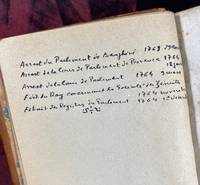 Arrest du Parlement de 1768
Arrest de la Cour de Parlement de Provence 1768
Arrest de la Cour de Parlement 1764
Edit du Roy concernant les Jésuites 1764 novembre
Extrait des Registres du Parlement 1764